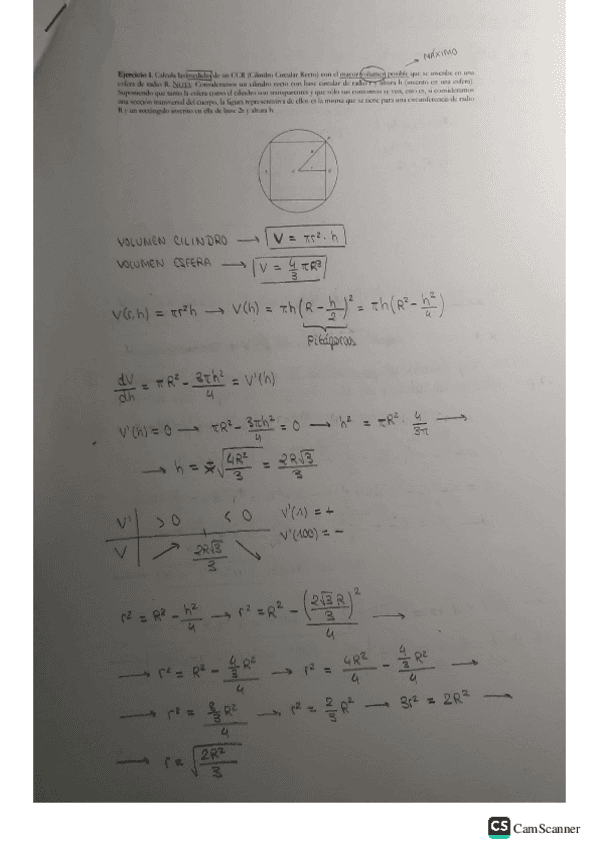 MÁXIMO
Ejercicio 1. Calcula las medidas de un CCR (Cilindro Circular Recto) con el mayor volumen posible que se inscribe en una
esfera de radio R. NOTA: Consideramos un cilindro recto con base circular de radio r y altura h (inscrito en una esfera).
Suponiendo que tanto la esfera como el cilindro son transparentes y que sólo sus contornos se ven, esto es, si consideramos
una sección transversal del cuerpo, la figura representativa de ellos es la misma que se tiene para una circunferencia de radio
R y un rectángulo inscrito en ella de base 2r y altura h.
VOLUMEN CILINDRO → V = πr²·h
VOLUMEN ESFERA → V = 4/3 πR³
V(r,h) = πr²h → V(h) = πh(R - h/2)² = πh(R² - h²/4)
Pitágoras
dV/dh = πR² - 3πh²/4 = V'(h)
V'(h) = 0 → πR² - 3πh²/4 = 0 → h² = πR² · 4/3π →
→ h = √(4R²/3) = 2R√3/3
V' | > 0 < 0 V'(1) = +
V'(100) = -
V | ↗ 2R√3/3 ↘
r² = R² - h²/4 → r² = R² - (2√3R/3)²/4 →
→ r² = R² - 4/3 R²/4 → r² = 4R²/4 - 4/3 R²/4 →
→ r² = 8/3 R²/4 → r² = 2/3 R² → 3r² = 2R² →
→ r = √(2R²/3)
CS CamScanner